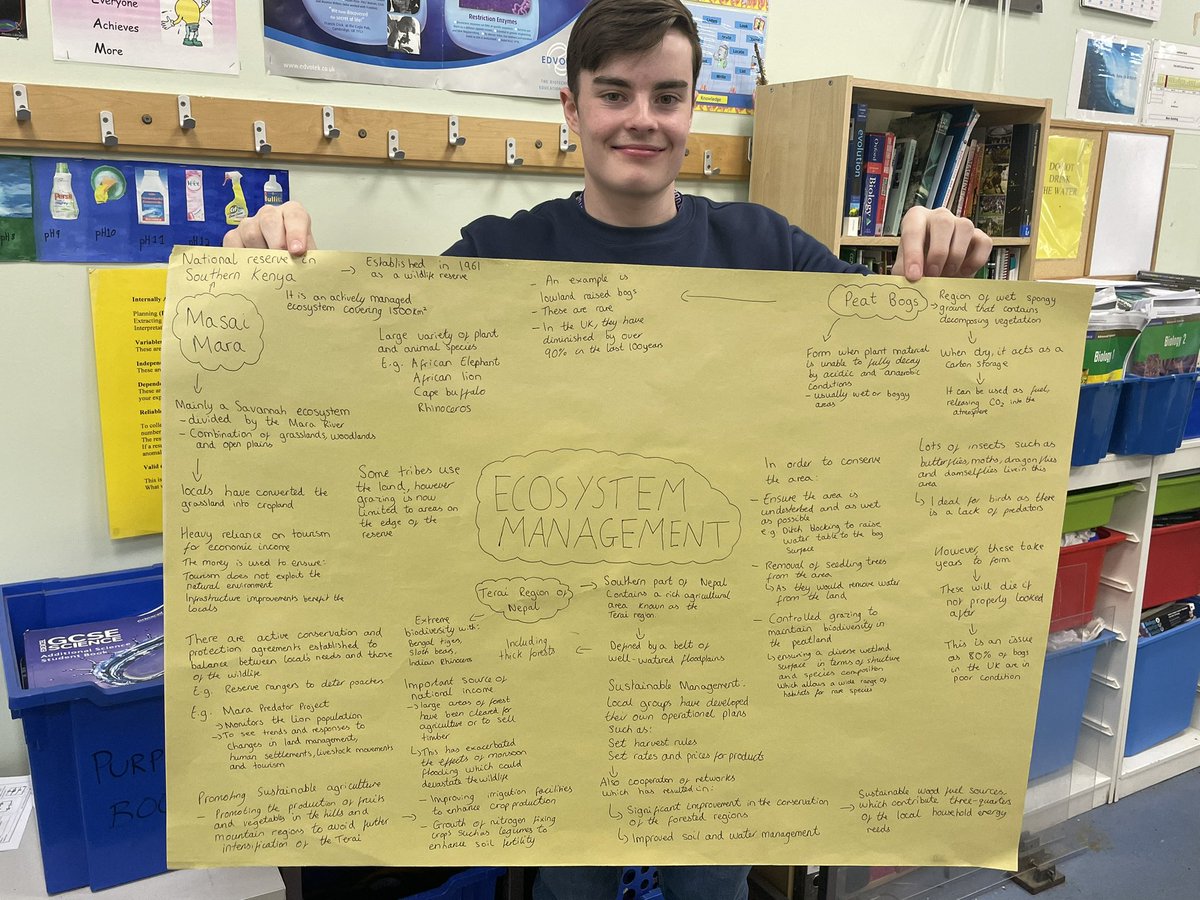 Everyone
Achieves
More
We have discovered
the secret of life!
Restriction Enzymes
www.edvotek.co.uk
EDVOTEK
Knowledge
pH9
pH10
pH11
evolution
Oxford
Biology
DO NOT
DRINK
THE WATER
Biology 1
Biology 2
GCSE
SCIENCE
Additional Science
Student Book
National reserve in
Southern Kenya
→ Established in 1961
as a wildlife reserve
Masai
Mara
It is an actively managed
ecosystem covering 1500km²
Large variety of plant
and animal species
E.g. African Elephant
African lion
Cape buffalo
Rhinoceros
Mainly a Savannah ecosystem
- divided by the Mara River
- Combination of grasslands, woodlands
and open plains
locals have converted the
grassland into cropland
Some tribes use
the land, however
grazing is now
limited to areas on
the edge of the
reserve
Heavy reliance on tourism
for economic income
The money is used to ensure:
Tourism does not exploit the
natural environment
Infrastructure improvements benefit the
locals
There are active conservation and
protection agreements established to
balance between locals needs and those
of the wildlife
E.g. Reserve rangers to deter poachers
E.g. Mara Predator Project
→ Monitors the lion population
→ To see trends and responses to
changes in land management,
human settlements, livestock movements
and tourism
- An example is
lowland raised bogs
- These are rare
- In the UK, they have
diminished by over
90% in the last 100 years
Peat Bogs
Region of wet spongy
ground that contains
decomposing vegetation
Form when plant material
is unable to fully decay
by acidic and anaerobic
conditions
- usually wet or boggy
areas
When dry, it acts as a
carbon storage
It can be used as fuel,
releasing CO₂ into the
atmosphere
ECOSYSTEM
MANAGEMENT
In order to conserve
the area:
- Ensure the area is
undisturbed and as wet
as possible
e.g. Ditch blocking to raise
water table to the bog
surface
- Removal of seedling trees
from the area
↳ As they would remove water
from the land
- Controlled grazing to
maintain biodiversity in
the peatland
↳ ensuring a diverse wetland
surface in terms of structure
and species composition
which allows a wide range of
habitats for rare species
Lots of insects such as
butterflies, moths, dragonflies
and damselflies live in this
area
↳ Ideal for birds as there
is a lack of predators
However, these take
years to form
These will die if
not properly looked
after
This is an issue
as 80% of bogs
in the UK are in
poor condition
Terai Region of
Nepal
Southern part of Nepal
Contains a rich agricultural
area known as the
Terai region
Defined by a belt of
well-watered floodplains
Including
thick forests
Extreme
biodiversity with:
Bengal tiges,
sloth bears,
Indian Rhinoceros
Important source of
national income
→ large areas of forest
have been cleared for
agriculture or to sell
timber
↳ This has exacerbated
the effects of monsoon
flooding which could
devastate the wildlife
Promoting Sustainable agriculture
- Promoting the production of fruits
and vegetables in the hills and
mountain regions to avoid further
intensification of the Terai
- Improving irrigation facilities
to enhance crop production
- Growth of nitrogen fixing
crops such as legumes to
enhance soil fertility
Sustainable Management:
Local groups have developed
their own operational plans
Such as:
Set harvest rules
Set rates and prices for products
Also cooperation of networks
which has resulted in:
↳ Significant improvement in the conservation
of the forested regions
↳ Improved soil and water management
→ Sustainable wood fuel sources
which contribute three-quarters
of the local household energy
needs